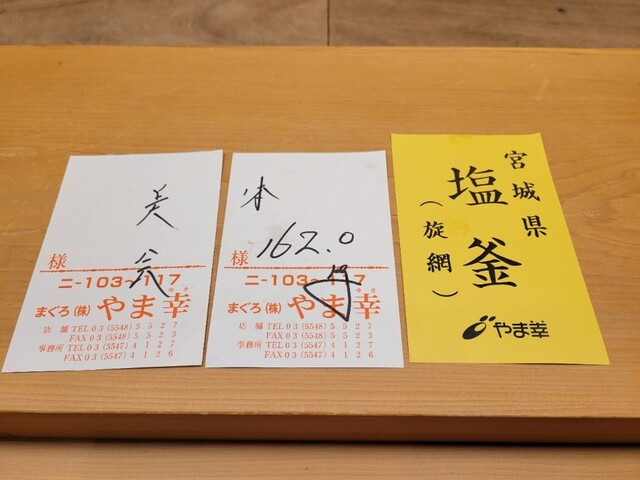 様
ニ-103-117
ゆき
まぐろ(株)やま幸
店舗 TEL 03 (5548) 5527
FAX 03 (5548) 5523
事務所 TEL 03 (5547) 4127
FAX 03 (5547) 4126
162.0
様
ニ-103-117
ゆき
まぐろ(株)やま幸
店舗 TEL 03 (5548) 5527
FAX 03 (5548) 5523
事務所 TEL 03 (5547) 4127
FAX 03 (5547) 4126
宮城県
塩釜
(旋網)
やま幸